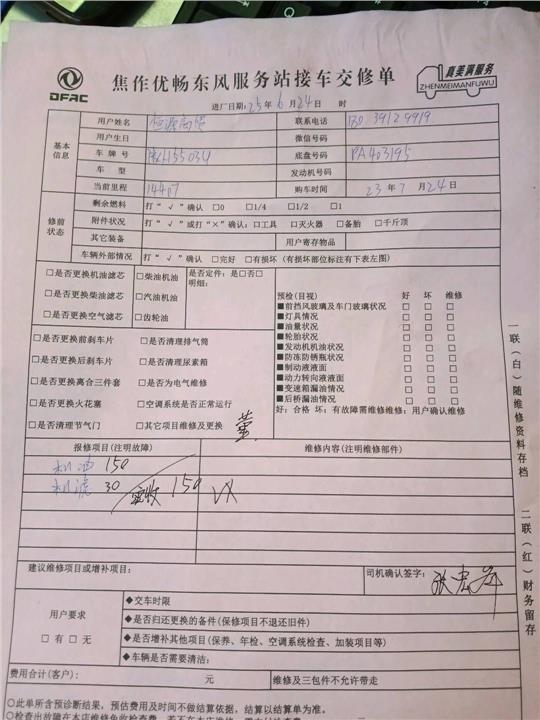 DFAC
焦作优畅东风服务站接车交修单
真美满服务
ZHENMEIMANFUWU
进厂日期:25年6月24日 时
基本信息
用户姓名 联系电话 180 3912 9919
用户生日 微信号码
车牌号 底盘号码 PA403195
车型 发动机号码
当前里程 14407 购车时间 23年7月24日
修前状态
剩余燃料 打“√”确认 □0 □1/4 □1/2 □1
附件状况 打“√”或打“×”确认:□工具 □灭火器 □备胎 □千斤顶
其它装备 用户寄存物品
车辆外部情况 打“√”确认 □完好 □有损坏(有损坏部位标注有下表左图)
□是否更换机油滤芯 □柴油机油 是否定件:是□否□
明细:
□是否更换柴油滤芯 □汽油机油
□是否更换空气滤芯 □齿轮油
预检(目视) 好 坏 维修
■前挡风玻璃及车门玻璃状况 □ □ □
■灯具情况 □ □ □
■油量状况 □ □ □
■轮胎状况 □ □ □
■发动机机油状况 □ □ □
■防冻防锈瓶状况 □ □ □
■制动液液面 □ □ □
■动力转向液液面 □ □ □
■变速箱漏油情况 □ □ □
■后桥漏油情况 □ □ □
好:合格 坏:有故障需维修维修:用户确认维修
□是否更换前刹车片 □是否清理排气筒
□是否更换后刹车片 □是否清理尿素箱
□是否更换离合三件套 □是否为电气维修
□是否更换火花塞 □空调系统是否正常运行
□是否清理节气门 □其它项目维修及更换
报修项目(注明故障) 维修内容(注明维修部件)
机油 150
机滤 30 实收 150
建议维修项目或增补项目: 司机确认签字:
用户要求
□有□无
◆交车时限
◆是否归还更换的备件(保修项目不退还旧件)
◆是否增补其他项目(保养、年检、空调系统检查、加装项目等)
◆车辆是否需要清洁:
费用合计(客户): 元 维修及三包件不允许带走
○此单所含预诊断结果,预估费用及时间不做结算依据,结算以结算单为准。
一联(白)随维修资料存档
二联(红)财务留存